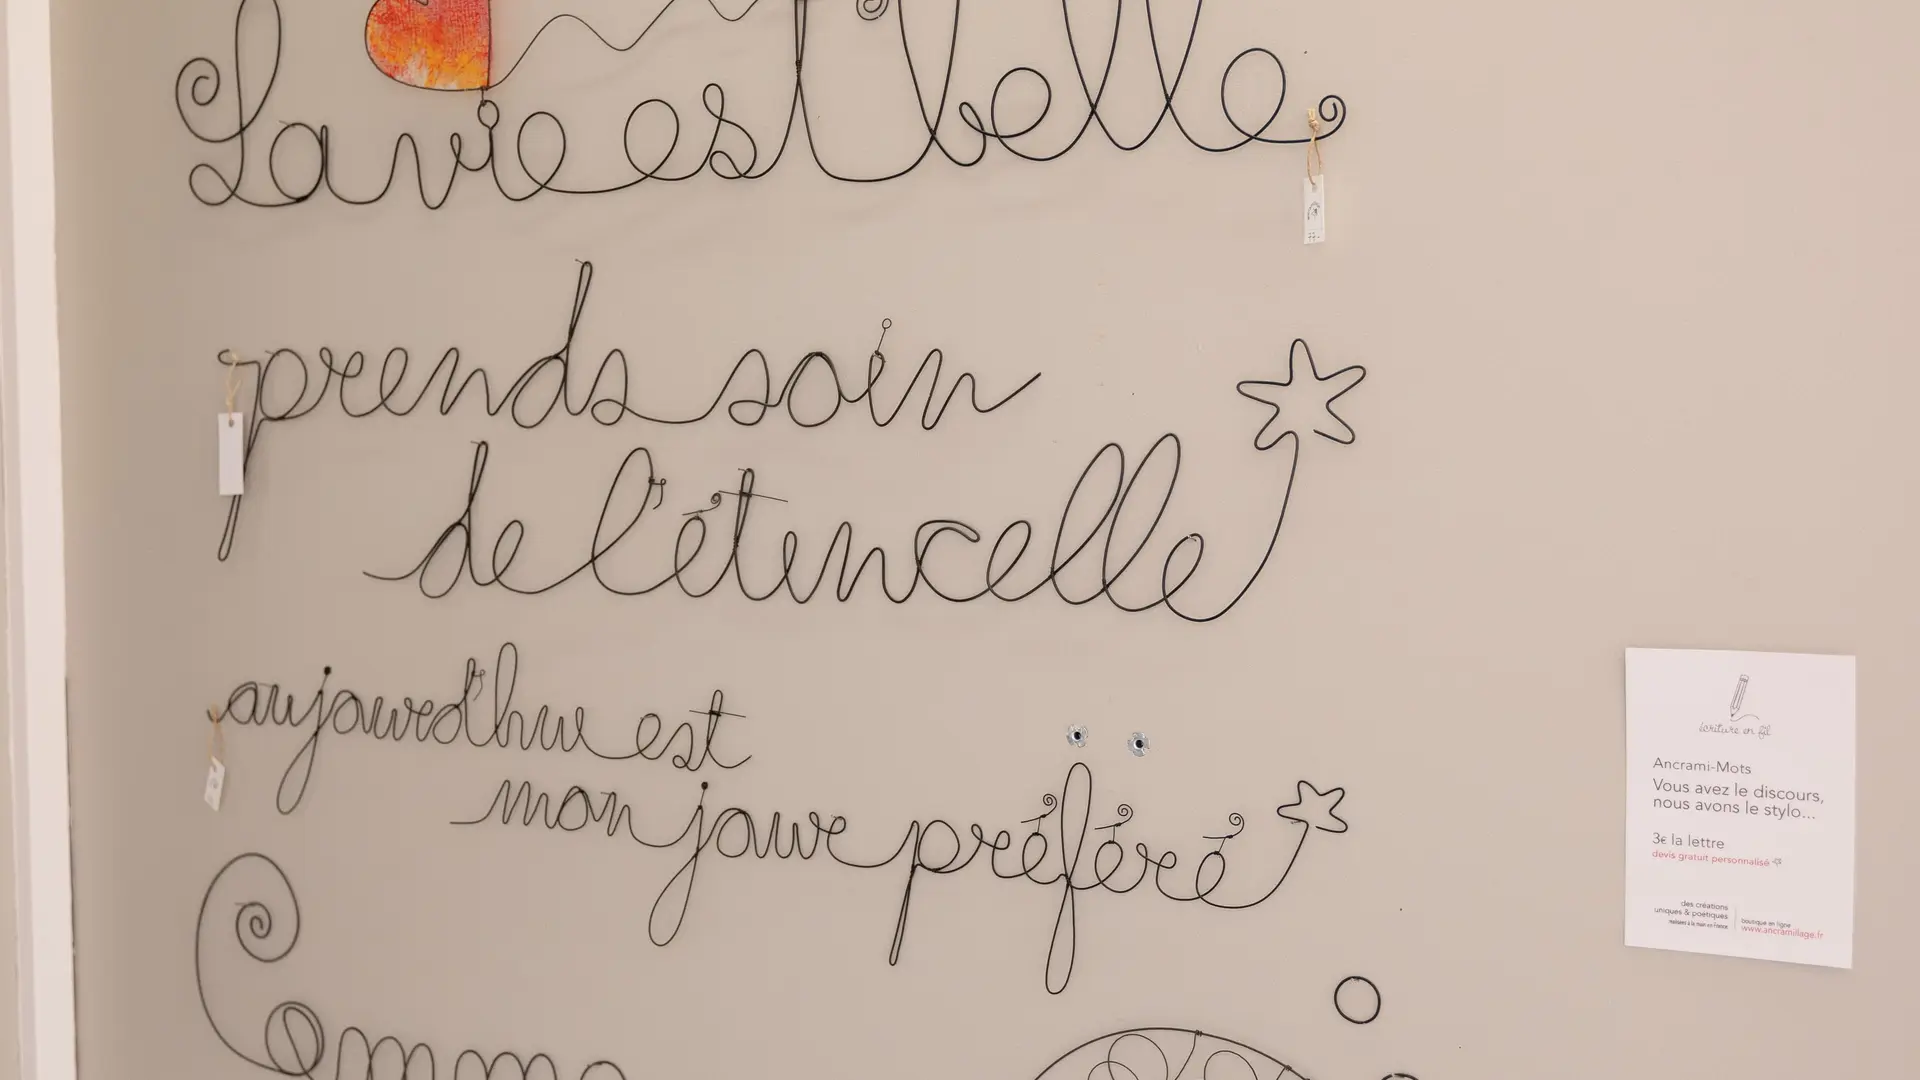 La vie est belle
prends soin
de l'étincelle
aujourd'hui est
mon jour préféré
écriture en fil
Ancrami-Mots
Vous avez le discours,
nous avons le stylo...
3€ la lettre
devis gratuit personnalisé
des créations
uniques & poétiques
réalisées à la main en France
boutique en ligne
www.ancramillage.fr